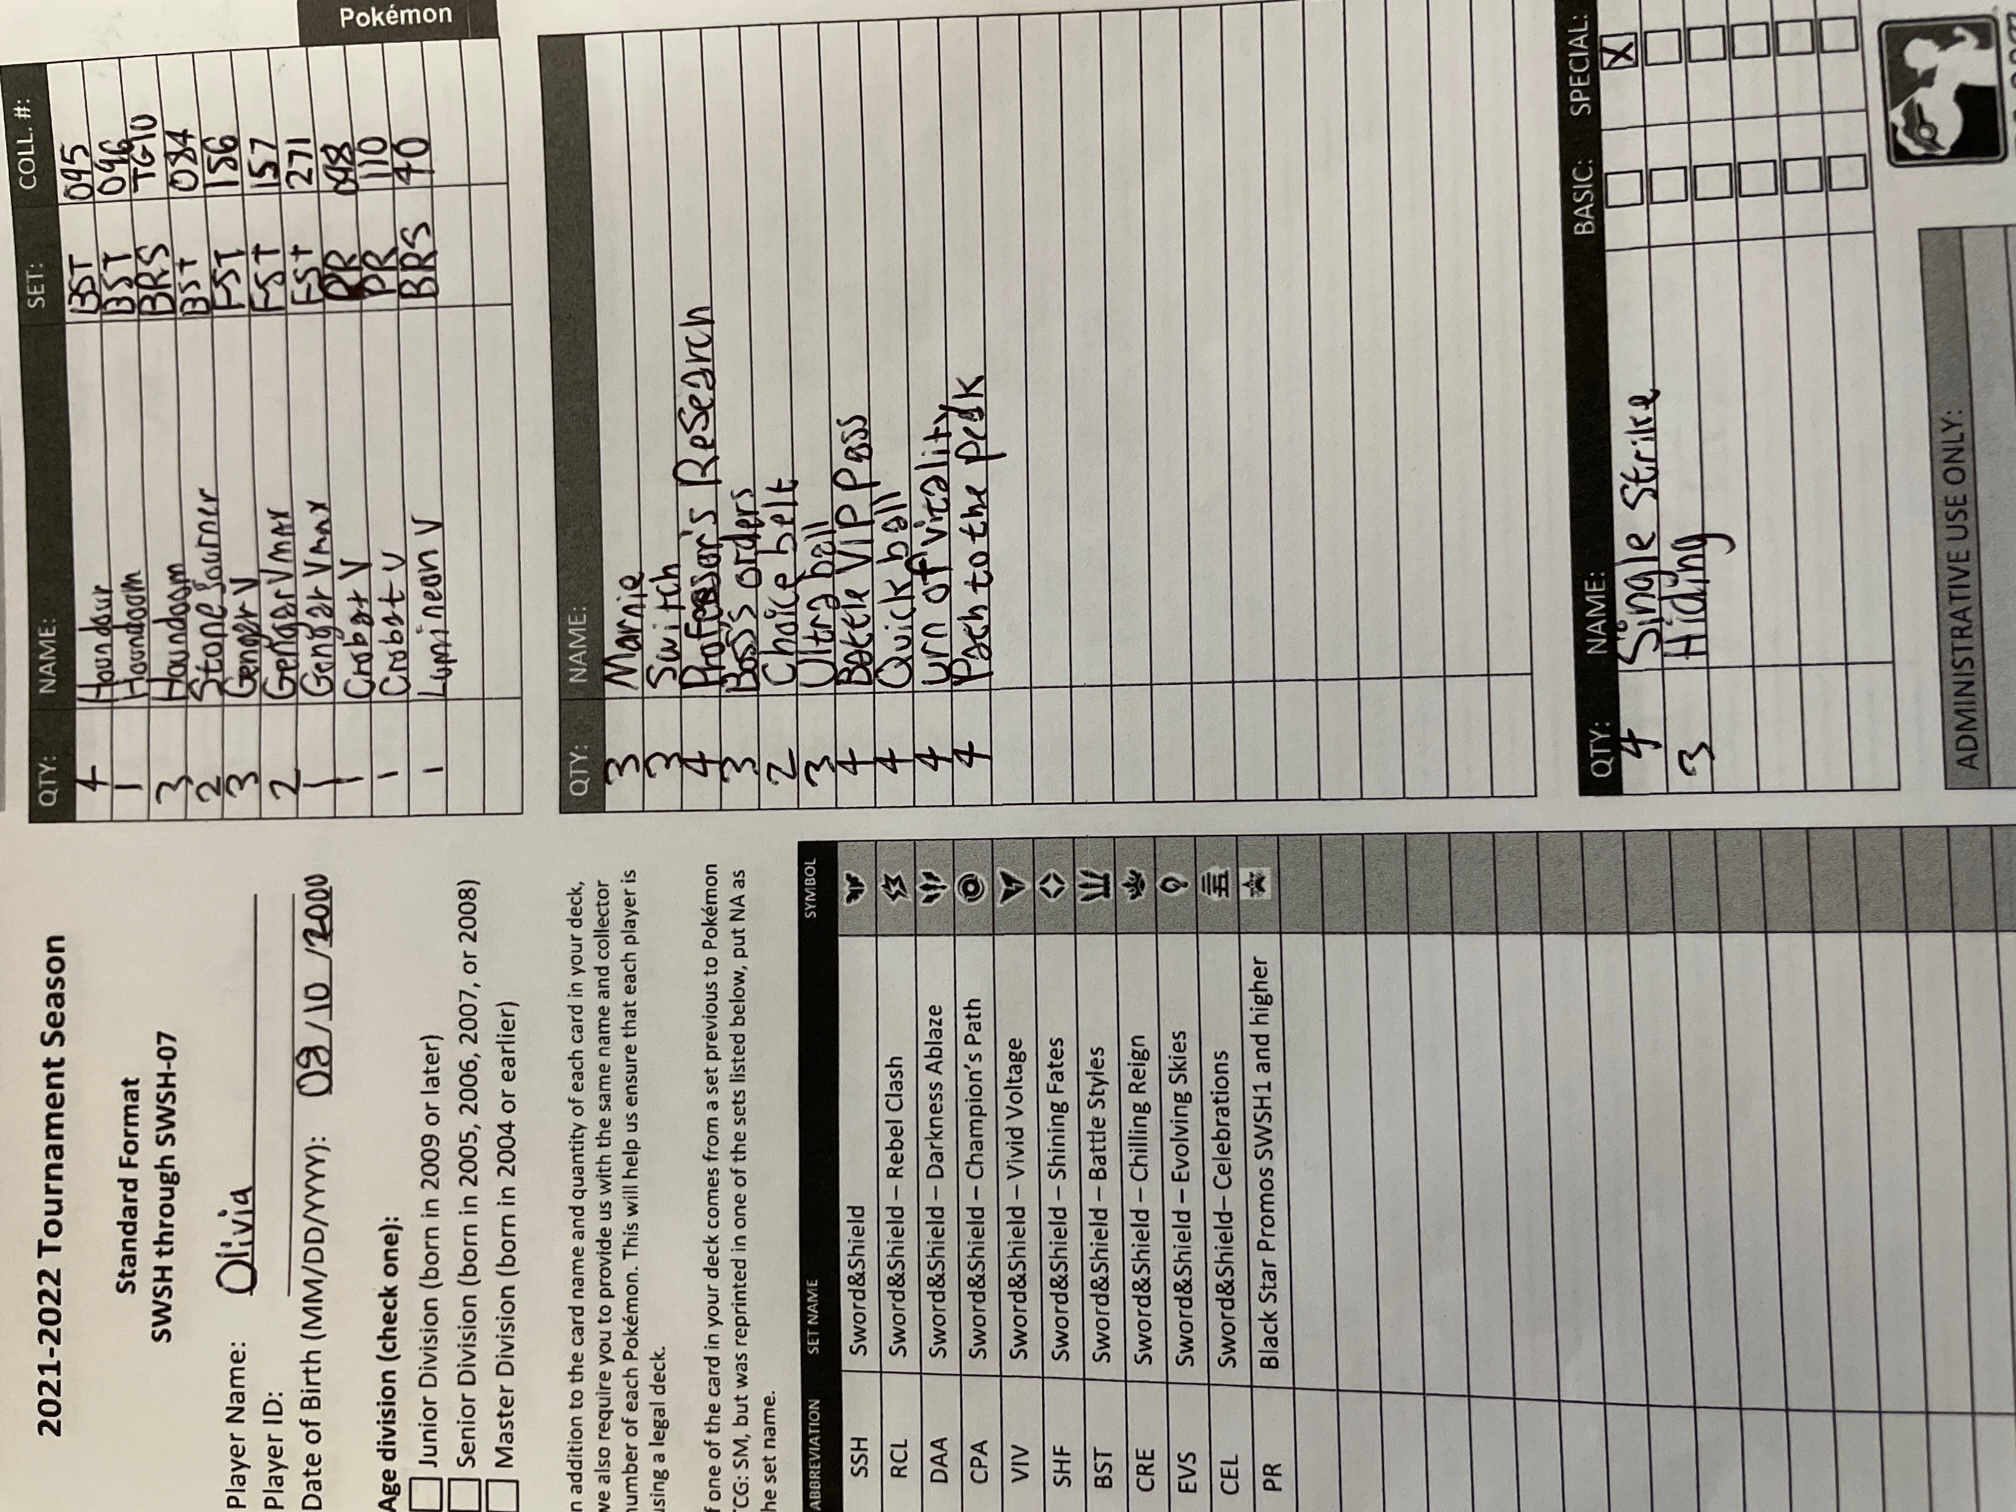 2021-2022 Tournament Season
Standard Format
SWSH through SWSH-07
Player Name: Olivia
Player ID:
Date of Birth (MM/DD/YYYY): 08/10/2000
Age division (check one):
Junior Division (born in 2009 or later)
Senior Division (born in 2005, 2006, 2007, or 2008)
Master Division (born in 2004 or earlier)
n addition to the card name and quantity of each card in your deck,
we also require you to provide us with the same name and collector
number of each Pokémon. This will help us ensure that each player is
using a legal deck.
f one of the card in your deck comes from a set previous to Pokémon
TCG: SM, but was reprinted in one of the sets listed below, put NA as
he set name.
ABBREVIATION SET NAME SYMBOL
SSH Sword&Shield
RCL Sword&Shield – Rebel Clash
DAA Sword&Shield – Darkness Ablaze
CPA Sword&Shield – Champion's Path
VIV Sword&Shield – Vivid Voltage
SHF Sword&Shield – Shining Fates
BST Sword&Shield – Battle Styles
CRE Sword&Shield – Chilling Reign
EVS Sword&Shield – Evolving Skies
CEL Sword&Shield– Celebrations
PR Black Star Promos SWSH1 and higher
QTY: NAME: SET: COLL. #:
4 Houndour BST 095
1 Houndoom BST 096
3 Houndoom BRS TG10
2 Stonejourner BST 084
3 Gengar V FST 156
2 Gengar VMAX FST 157
1 Gengar Vmax FST 271
1 Crobat V PR 098
1 Crobat V PR 110
1 Lumineon V BRS 40
Pokémon
QTY: NAME:
3 Marnie
3 Switch
4 Professor's Research
3 Boss's orders
2 Choice belt
3 Ultra ball
4 Battle VIP Pass
4 Quick ball
4 urn of vitality
4 Path to the peak
QTY: NAME: BASIC: SPECIAL:
4 Single Strike X
3 Hiding
ADMINISTRATIVE USE ONLY: